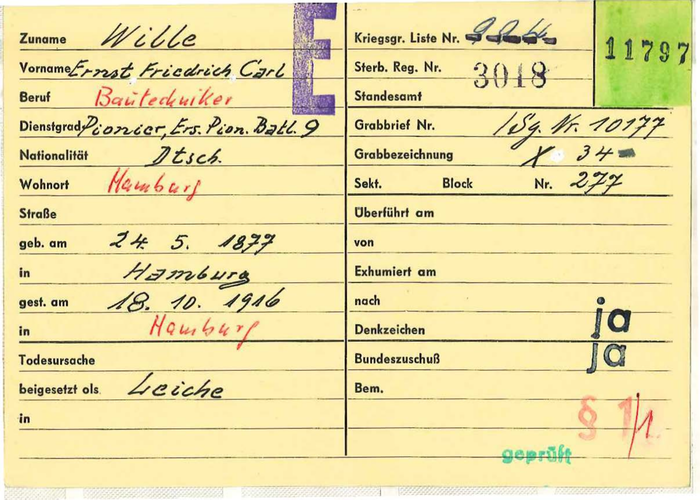 Zuname Wille
Vorname Ernst Friedrich Carl
Beruf Bautechniker
Dienstgrad Pionier, Ers. Pion. Batl. 9
Nationalität Dtsch.
Wohnort Hamburg
Straße
geb. am 24. 5. 1877
in Hamburg
gest. am 18. 10. 1916
in Hamburg
Todesursache
beigesetzt als Leiche
in
E
Kriegsgr. Liste Nr.
11797
Sterb. Reg. Nr. 3018
Standesamt
Grabbrief Nr. /Sg. Nr. 10177
Grabbezeichnung X 34
Sekt. Block Nr. 277
Überführt am
von
Exhumiert am
nach
Denkzeichen ja
Bundeszuschuß ja
Bem.
§ 1/1
geprüft